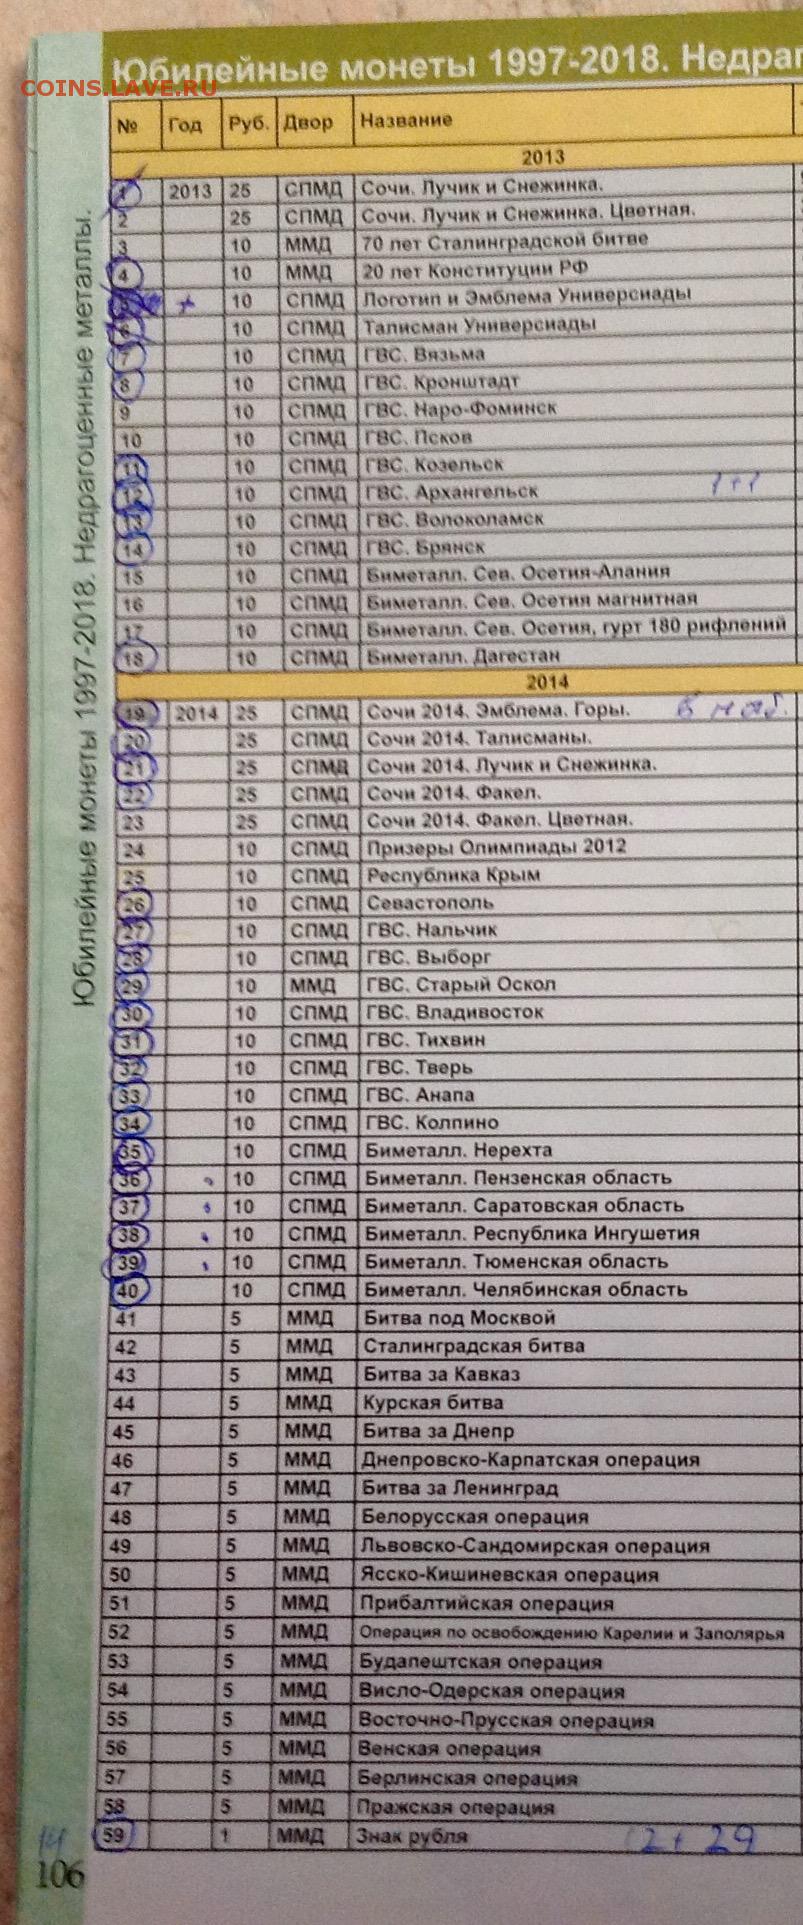 Юбилейные монеты 1997-2018. Недраг
COINS.LAVE.RU
№ Год Руб. Двор Название
2013
1 2013 25 СПМД Сочи. Лучик и Снежинка.
2 25 СПМД Сочи. Лучик и Снежинка. Цветная.
3 10 ММД 70 лет Сталинградской битве
4 10 ММД 20 лет Конституции РФ
5 + 10 СПМД Логотип и Эмблема Универсиады
6 10 СПМД Талисман Универсиады
7 10 СПМД ГВС. Вязьма
8 10 СПМД ГВС. Кронштадт
9 10 СПМД ГВС. Наро-Фоминск
10 10 СПМД ГВС. Псков
11 10 СПМД ГВС. Козельск
12 10 СПМД ГВС. Архангельск 1+1
13 10 СПМД ГВС. Волоколамск
14 10 СПМД ГВС. Брянск
15 10 СПМД Биметалл. Сев. Осетия-Алания
16 10 СПМД Биметалл. Сев. Осетия магнитная
17 10 СПМД Биметалл. Сев. Осетия, гурт 180 рифлений
18 10 СПМД Биметалл. Дагестан
2014
19 2014 25 СПМД Сочи 2014. Эмблема. Горы.
20 25 СПМД Сочи 2014. Талисманы.
21 25 СПМД Сочи 2014. Лучик и Снежинка.
22 25 СПМД Сочи 2014. Факел.
23 25 СПМД Сочи 2014. Факел. Цветная.
24 10 СПМД Призеры Олимпиады 2012
25 10 СПМД Республика Крым
26 10 СПМД Севастополь
27 10 СПМД ГВС. Нальчик
28 10 СПМД ГВС. Выборг
29 10 ММД ГВС. Старый Оскол
30 10 СПМД ГВС. Владивосток
31 10 СПМД ГВС. Тихвин
32 10 СПМД ГВС. Тверь
33 10 СПМД ГВС. Анапа
34 10 СПМД ГВС. Колпино
35 10 СПМД Биметалл. Нерехта
36 10 СПМД Биметалл. Пензенская область
37 10 СПМД Биметалл. Саратовская область
38 10 СПМД Биметалл. Республика Ингушетия
39 10 СПМД Биметалл. Тюменская область
40 10 СПМД Биметалл. Челябинская область
41 5 ММД Битва под Москвой
42 5 ММД Сталинградская битва
43 5 ММД Битва за Кавказ
44 5 ММД Курская битва
45 5 ММД Битва за Днепр
46 5 ММД Днепровско-Карпатская операция
47 5 ММД Битва за Ленинград
48 5 ММД Белорусская операция
49 5 ММД Львовско-Сандомирская операция
50 5 ММД Ясско-Кишиневская операция
51 5 ММД Прибалтийская операция
52 5 ММД Операция по освобождению Карелии и Заполярья
53 5 ММД Будапештская операция
54 5 ММД Висло-Одерская операция
55 5 ММД Восточно-Прусская операция
56 5 ММД Венская операция
57 5 ММД Берлинская операция
58 5 ММД Пражская операция
59 1 ММД Знак рубля 2+29
14
106
Юбилейные монеты 1997-2018. Недрагоценные металлы.